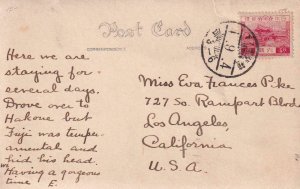 Post Card
CORRESPONDENCE
Here we are
staying for
several days.
Drove over to
Hakone but
Fuji was temper-
amental and
hid his head.
Having a gorgeous
time E.
Miss Eva Frances Pike
727 So. Rampart Blvd
Los Angeles,
California
U.S.A.